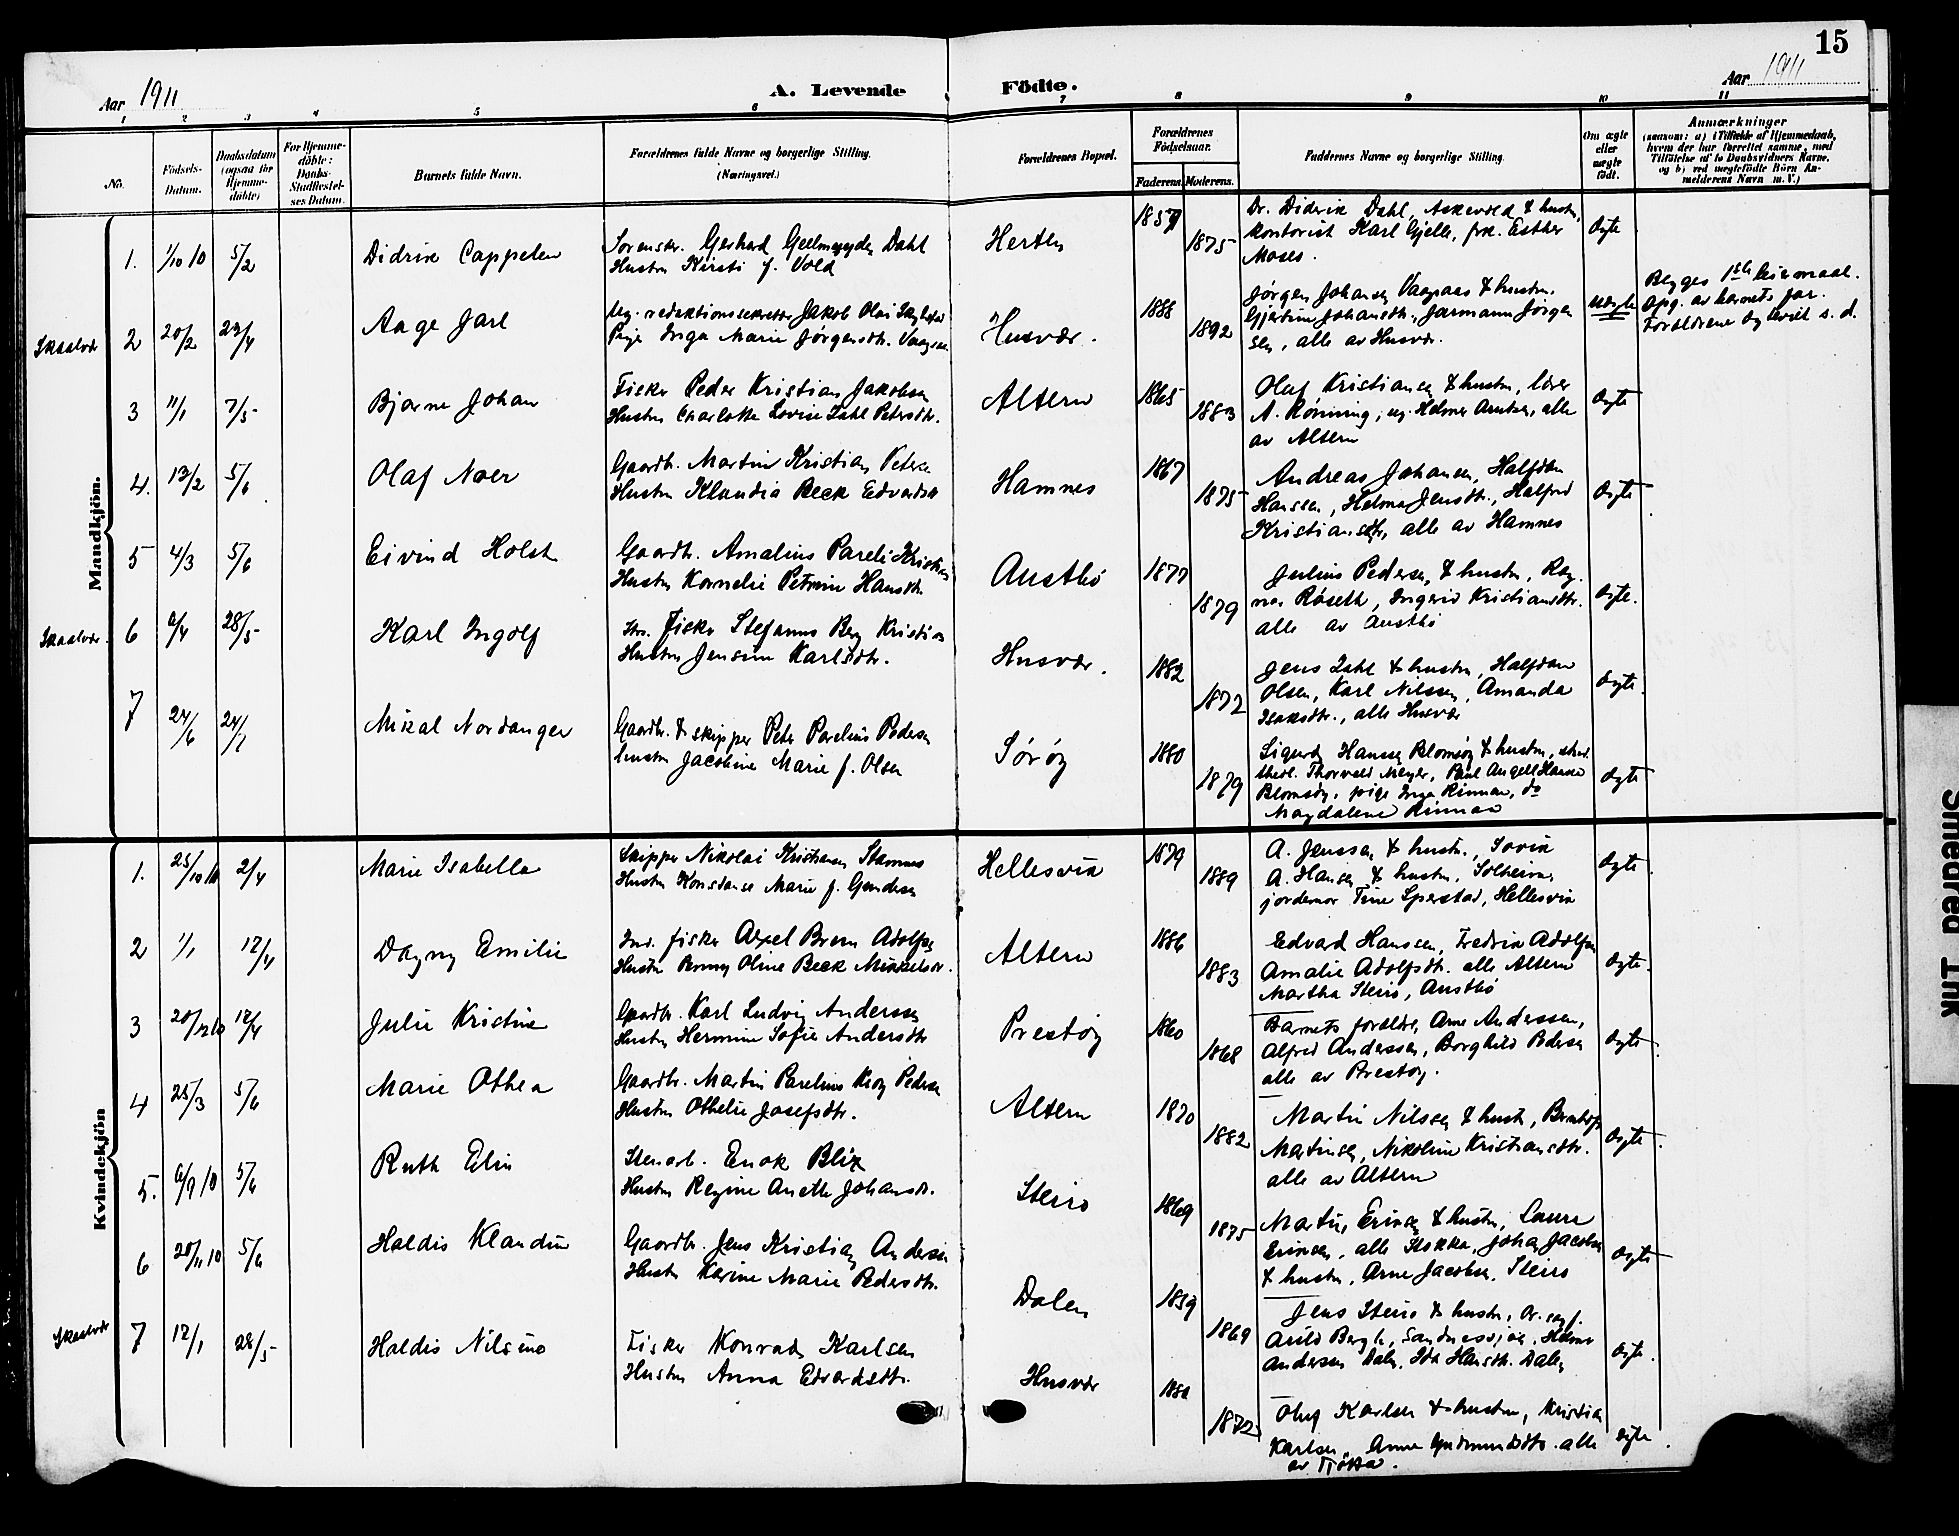 15
Aar 1911
A. Levende
Födte.
Aar 1911
1 2 3 4 5 6 7 8 9 10 11
No.
Födsels-
Datum.
Daabsdatum
(ogsaa for
Hjemme-
døbte)
For Hjemme-
døbte:
Daabs-
Stadfæstel-
ses Datum.
Barnets fulde Navn.
Forældrenes fulde Navne og borgerlige Stilling.
(Næringsvei.)
Forældrenes Bopæl.
Forældrenes
Födselsaar.
Faderens. Moderens.
Faddernes Navne og borgerlige Stilling.
Om ægte
eller
uægte
födt.
Anmærkninger
(saasom: a) i Tilfælde af Hjemmedaab,
hvem der har forrettet samme, med
Tilføielse af to Daabsvidners Navne,
og b) ved uægtefödte Börn An-
melderens Navn m. V.)
Mandkjön.
1. 1/10 10 5/2 Didrik Cappelen
Gerhard Dahl
Hustru Kirsti f. Vold
Herten
1875
Dr. Diderik Dahl, Askevold & hustru,
kontorist Karl Gjelle, frk. Esther
Moses.
ægte
2 20/2 23/4 Aage Jarl
Ug. redaktionssekretær Jakob Olai
Pige Inga Marie Jørgensdtr.
Husvær.
1888
1892
Jørgen Johansen & hustru.
Johansdtr., Jarmann Jørgen
sen, alle av Husvær.
uægte
Begges 1ste leiermaal.
Opg. av barnets far.
Forældrene s. d.
3 11/1 7/5 Bjarne Johan
Fisker Peder Kristian Jakobsen
Hustru Charlotte Lovise Zahl Petersdtr.
Altern
1865
1883
Olaf Kristiansen & hustru, lærer
A. Rønning, ug. Helmer alle
av Altern
ægte
4. 13/2 5/6 Olaf Noer
Gaardbr. Martin Kristian Petersen
Hustru Klaudia Beck Edvardsdtr
Hamnes
1867
1875
Andreas Johansen, Halfdan
Hanssen, Helma Jensdtr., Halfrid
Kristiansdtr, alle av Hamnes
ægte
5 4/3 5/6 Eivind Holst
Gaardbr. Amalius Pareli
Hustru Kornelie Petrine Hansdtr.
Austbø
1877
1879
Julius Pedersen, & hustru, Rag-
nar Røseth, Ingerid Kristiansdtr.
alle av Austbø
ægte.
6 28/5 Karl Ingolf
Fisker Stefanus Berg
Hustru Jensine Karlsdtr.
Husvær.
1882
1872
Jens Zahl & hustru, Halfdan
Olsen, Karl Nilssen, Amanda
Isaksdtr., alle Husvær
ægte.
7 24/6 Mikal Nordanger
Gaardbr. & skipper Peter Parelius Pedersen
hustru Jacobine Marie f. Olsen
Sørøy
1880
1879
Sigurd Hanssen Blomsøy & hustru, stud.
theol. Thorvald Meyer, Paul Angell Hansen
Blomsøy, pige Inga Rinnan, do
Magdalene Rinnan
ægte
Kvindekjön
1. 25/10 10 2/4 Marie Isabella
Skipper Nikolai Kristiansen
Hustru Konstanse Marie f.
Hellesvik
1879
1889
A. Jenssen & hustr., Sovik
A. Hansen & hustru, Solheim,
jordemor Tine Sperstad, Hellesvik
ægte
2 1/1 17/4 Dagny Emilie
Ind. fisker Axel Adolfsen
Hustru Oline Beck
Altern
1886
1883
Edvard Hanssen, Fredrik Adolfsen
Amalie Adolfsdtr. alle Altern
Martha Steiro, Austbø
ægte.
3 20/12 10 17/4 Julie Kristine
Gaardbr. Karl Ludvig Anderssen
Hustru Hermine Sofie Andersdtr
Prestøy
1860
1868
Barnets forældre, Arne Anderssen,
Alfred Anderssen, Borghild Pedersen
alle av Prestøy.
ægte.
4 25/3 5/6 Marie Othea
Gaardbr. Martin Parelius Pedersen
Hustru Othelie Josefsdtr.
Altern
1870
1882
Martin Nilssen & hustr,
Martinsen, Nikoline Kristiansdtr.
alle av Altern
ægte.
5. 6/9 10 5/6 Ruth Elin
Stenarb. Enok Blix
Hustru Regine Anette Johansdtr.
Steiro
1869
1875
Martin Eriksen & hustru, Laura
Eriksen, alle Stokka, Johan Jacobsen
& hustru, Arne Jacobsen, Steiro
ægte
6 20/11 10 5/6 Haldis Klaudine
Gaardbr. Jens Kristian Andersen
Hustru Karine Marie Pedersdtr.
Dalen
1859
1869
Jens Steiro & hustru,
Arild Bergh, Sandnessjøen, Helmer
Andersen Dalen, Ida Hansdtr. Dalen
ægte.
7 17/1 28/5 Haldis Nilsine
Fisker Konrad Karlsen
Hustru Anna Edvardsdtr.
Husvær
1872
Oluf Karlsen & hustru, Kristian
Karlsen, Anna alle
av Tjøtta.
ægte.
Smeared Ink